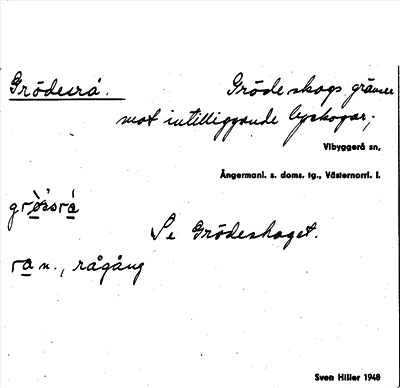 Grödesrå. Grödeskogs gränser
mot intilliggande byskogar;
Vibyggerå sn,
Ångermanl. s. doms. tg., Västernorrl. l.
Se Grödeskaget.
ra n., rågång
Sven Hiller 1948